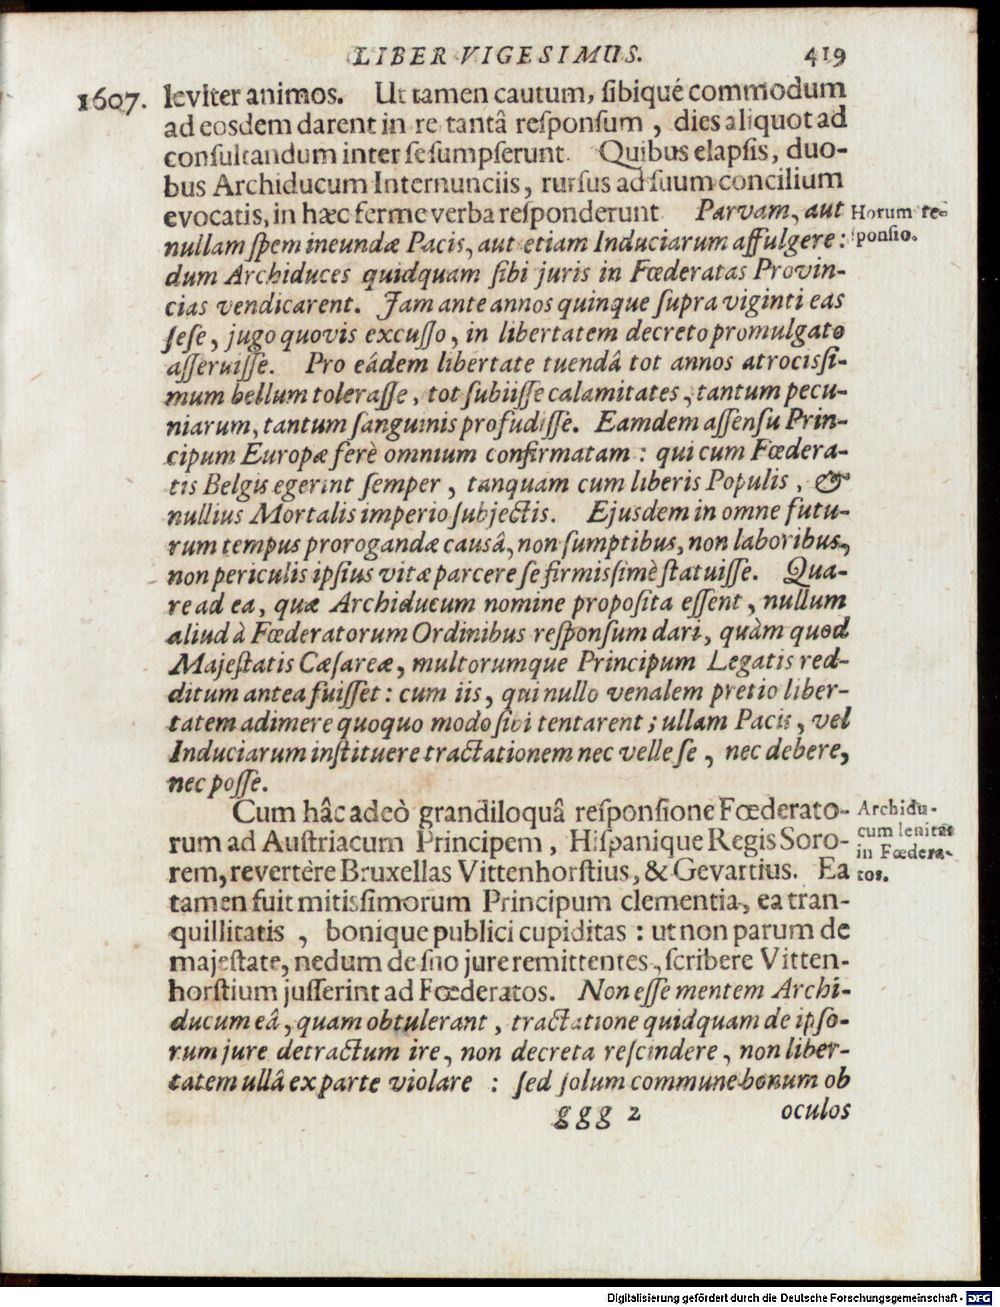 LIBER VIGESIMUS. 419
1607. leviter animos. Ut tamen cautum, sibiqué commodum
ad eosdem darent in re tantâ responsum, dies aliquot ad
consultandum inter se sumpserunt. Quibus elapsis, duo-
bus Archiducum Internunciis, rursus ad suum concilium
evocatis, in hæc ferme verba responderunt Parvam, aut
Horum re-
nullam spem ineundæ Pacis, aut etiam Induciarum affulgere:
sponsio.
dum Archiduces quidquam sibi juris in Fœderatas Provin-
cias vendicarent. Jam ante annos quinque supra viginti eas
sese, jugo quovis excusso, in libertatem decreto promulgato
asseruisse. Pro eâdem libertate tuendâ tot annos atrocissi-
mum bellum tolerasse, tot subiisse calamitates, tantum pecu-
niarum, tantum sanguinis profudisse. Eamdem assensu Prin-
cipum Europæ ferè omnium confirmatam: qui cum Fœdera-
tis Belgis egerint semper, tanquam cum liberis Populis, &
nullius Mortalis imperio subjectis. Ejusdem in omne futu-
rum tempus prorogandæ causâ, non sumptibus, non laboribus,
non periculis ipsius vitæ parcere se firmissimè statuisse. Qua-
re ad ea, quæ Archiducum nomine proposita essent, nullum
aliud à Fœderatorum Ordinibus responsum dari, quàm quod
Majestatis Cæsareæ, multorumque Principum Legatis red-
ditum antea fuisset: cum iis, qui nullo venalem pretio liber-
tatem adimere quoquo modo sibi tentarent; ullam Pacis, vel
Induciarum instituere tractationem nec velle se, nec debere,
nec posse.
Cum hâc adeò grandiloquâ responsione Fœderato-
Archidu-
rum ad Austriacum Principem, Hispanique Regis Soro-
cum lenitas
in Fœdera-
rem, revertère Bruxellas Vittenhorstius, & Gevartius. Ea
tos.
tamen fuit mitissimorum Principum clementia, ea tran-
quillitatis, bonique publici cupiditas: ut non parum de
majestate, nedum de suo jure remittentes, scribere Vitten-
horstium jusserint ad Fœderatos. Non esse mentem Archi-
ducum eâ, quam obtulerant, tractatione quidquam de ipso-
rum jure detractum ire, non decreta rescindere, non liber-
tatem ullâ ex parte violare: sed solum commune bonum ob
ggg 2 oculos
Digitalisierung gefördert durch die Deutsche Forschungsgemeinschaft - DFG